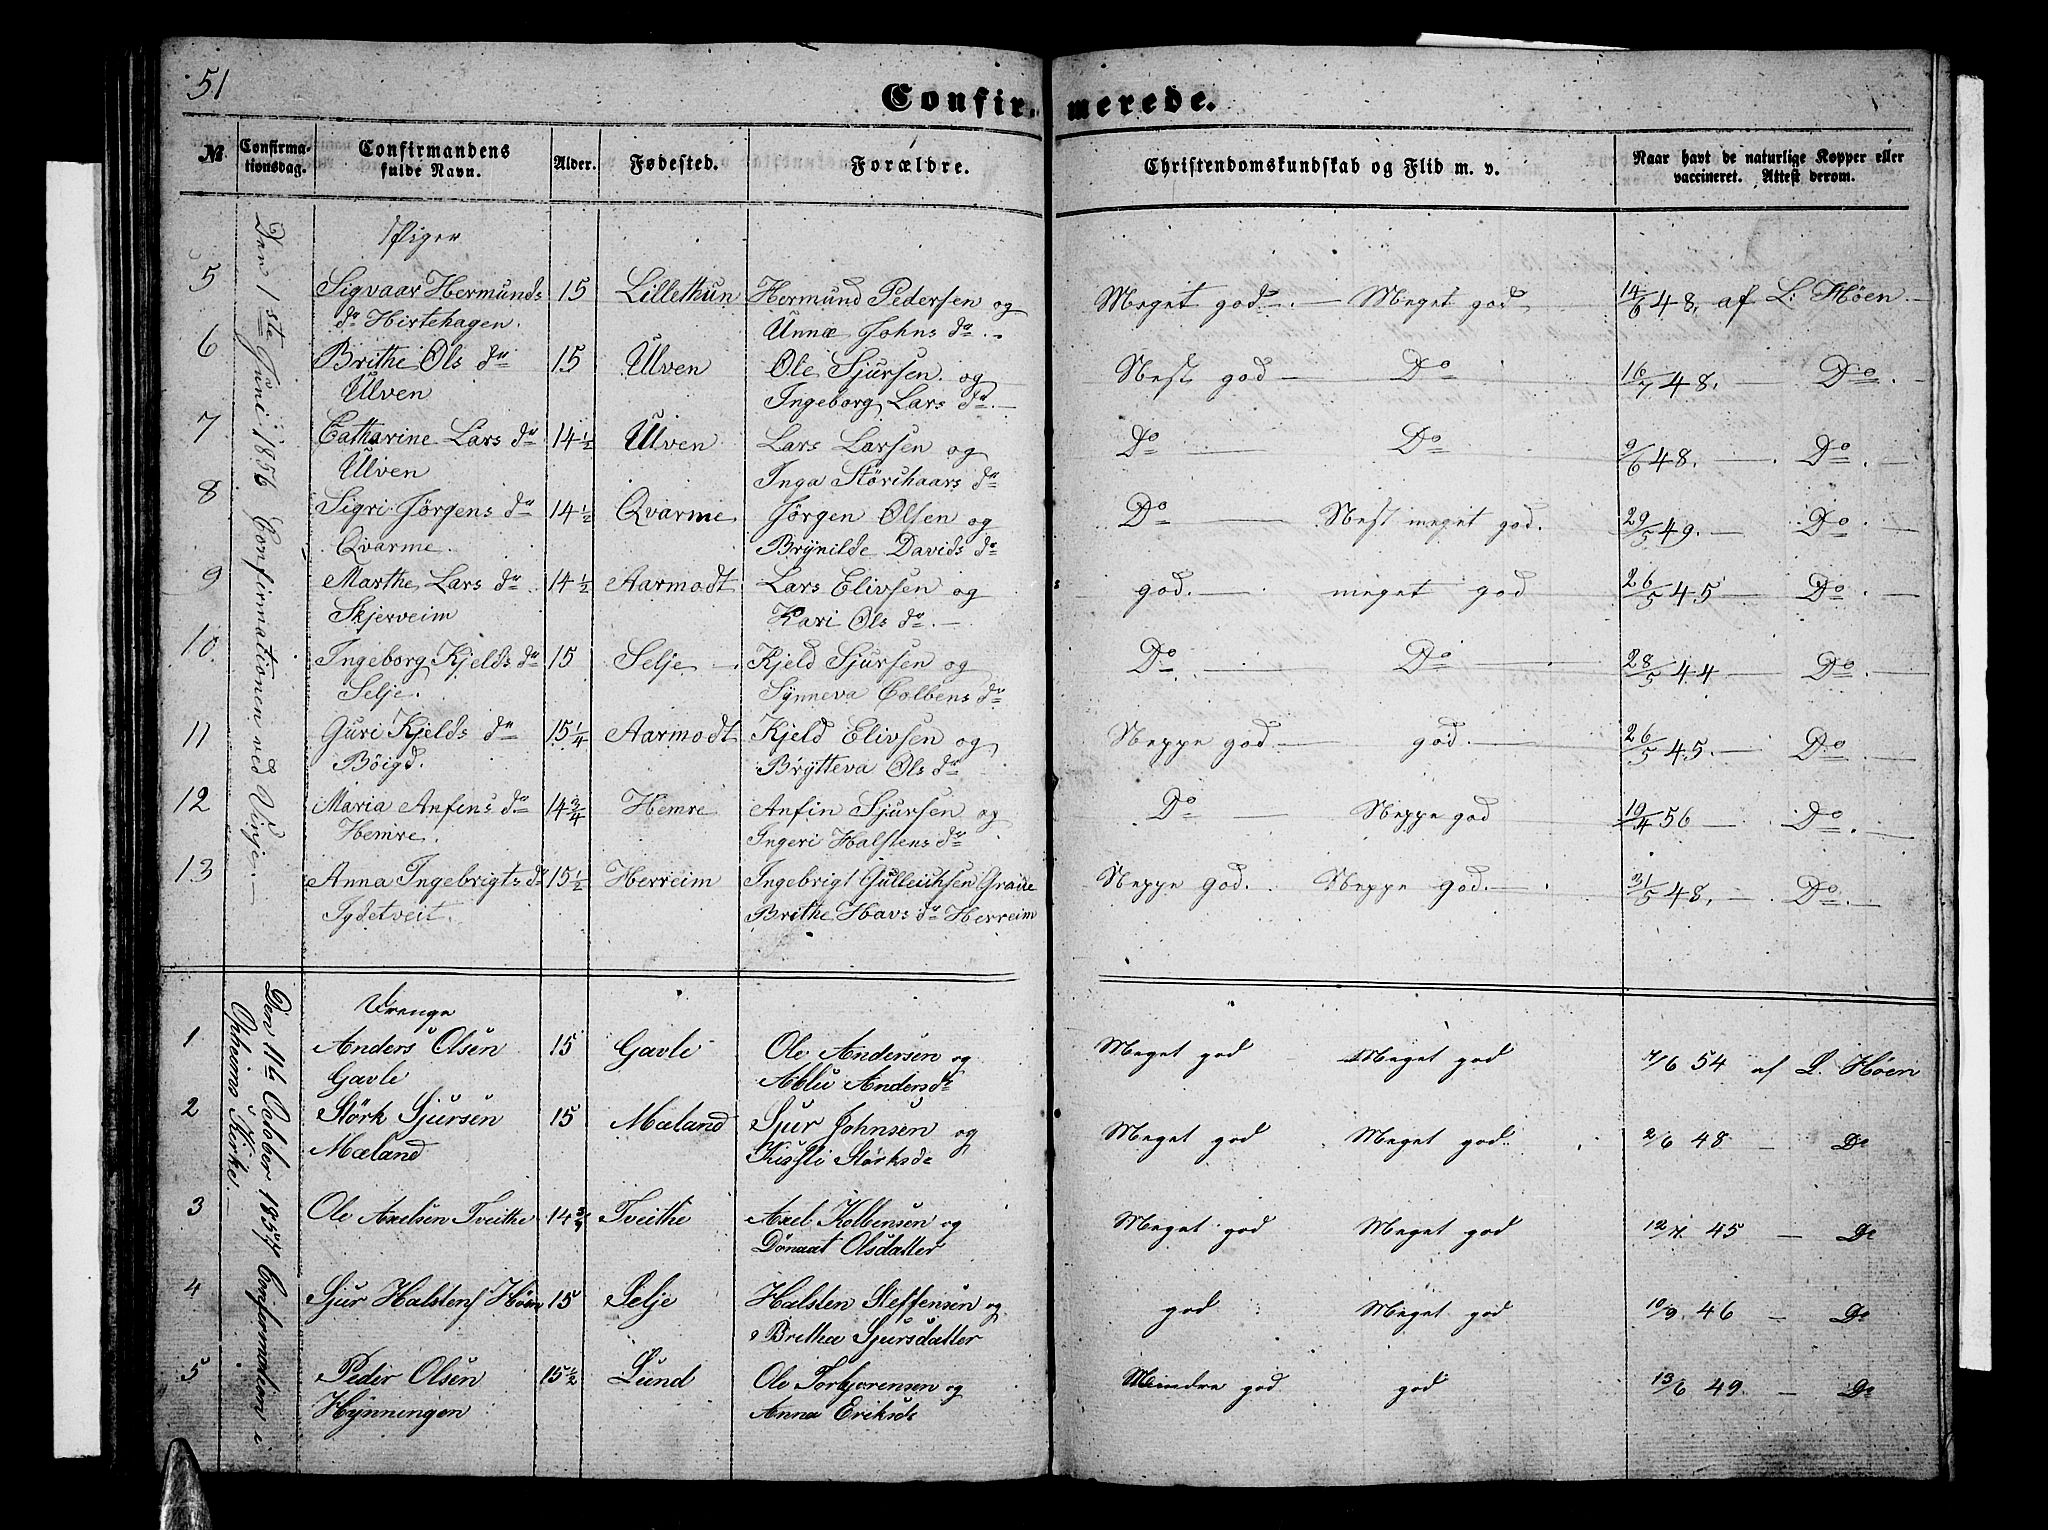 51
Confirmerede.
№ Confirmationsdag. Confirmandens fulde Navn. Alder. Fødested. Forældre. Christendomskundskab og Flid m. v. Naar havt de naturlige Kopper eller vaccineret. Attest derom.
Den 1ste Juni 1856 Confirmationen ved Vinje.
Piger
5 Sigvaar Hermunds 15 Lillethun Hermund Pedersen og Meget god. — Meget god 14/6 48, af L: Høen
dr Hirtehagen. Unnæ Johns dr
6 Brithe Ols dr 15 Ulven Ole Sjursen og Nest god — Do 16/7 48. — Do
Ulven Ingeborg Lars dr
7 Catharine Lars dr 14 1/2 Ulven Lars Larsen og Do Do 9/6 48. — Do
Ulven Inga Störchaars dr
8 Sigri Jörgens dr 14 1/2 Qvarme Jörgen Olsen og Do — Nest meget god. 29/5 49. — Do
Qvarme. Brÿnilde Davids dr
9 Marthe Lars dr 14 1/2 Aarmodt Lars Elivsen og god. — meget god 26/5 45 — Do
Skjerveim Kari Ols dr
10. Ingeborg Kjelds dr 15 Selje Kjeld Sjursen og Do — Do 28/5 44 Do
Selje. Sÿnneva Colbens dr
11 Guri Kjelds dr 15 1/4 Aarmodt Kjeld Elivsen og Neppe god — god. 26/5 45. — Do
Böigd. Brÿtteva Ols dr
12 Maria Anfins dr 14 3/4 Hemre Anfin Sjursen og Do — Neppe god 19/4 56 — Do
Hemre. Ingeri Halstens dr
13 Anna Ingebrigts dr 15 1/2 Herreim Ingebrigt Gulleichsen Neppe god. Neppe god. 31/5 48. — Do
Tydetveit. Brithe Havs dr Herreim
Den 11te October 1857 Confirmation i
Opheims Kirke.
Drenge
1 Anders Olsen 15 Gavle Ole Andersen og Meget god Meget god 7/6 54 af L. Høen
Gavle Ablu Andersdr
2 Störk Sjursen 15 Mæland Sjur Johnsen og Meget god Meget god. 2/6 48 — Do
Mæland Störksdr
3 Ole Axelsen Tveithe 14 3/4 Tveithe Axel Kolbensen og Meget god Meget god 12/7 45 — Do
Dönaat Olsdatter
4 Sjur Halstens Höen 15 Selje Halsten Steffensen og god Meget god 10/9 46 — Do
Britha Sjursdatter
5 Peder Olsen 15 1/2 Lund Ole Torbjorensen og Mindre god god 13/6 49. — Do
Hÿnningen Anna Eriksdr